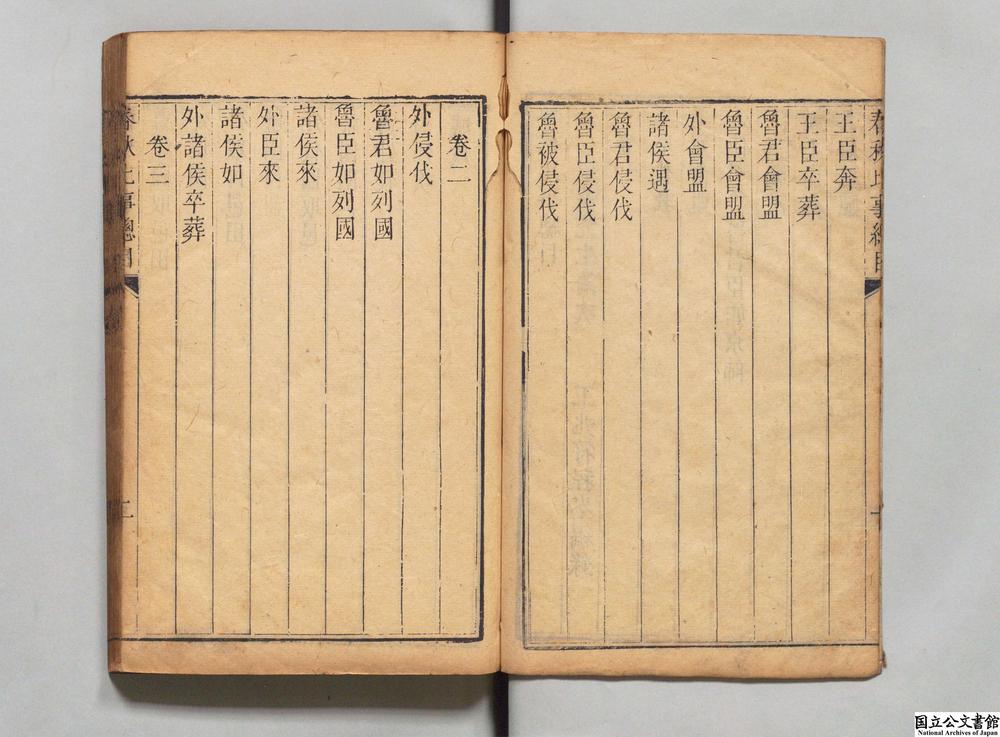 春秋比事總目
王臣奔
王臣卒葬
魯君會盟
魯臣會盟
外會盟
諸侯遇
魯君侵伐
魯臣侵伐
魯被侵伐
一
卷二
外侵伐
魯君如列國
魯臣如列國
諸侯來
外臣來
諸侯如
外諸侯卒葬
卷三
春秋比事總目
二
国立公文書館
National Archives of Japan